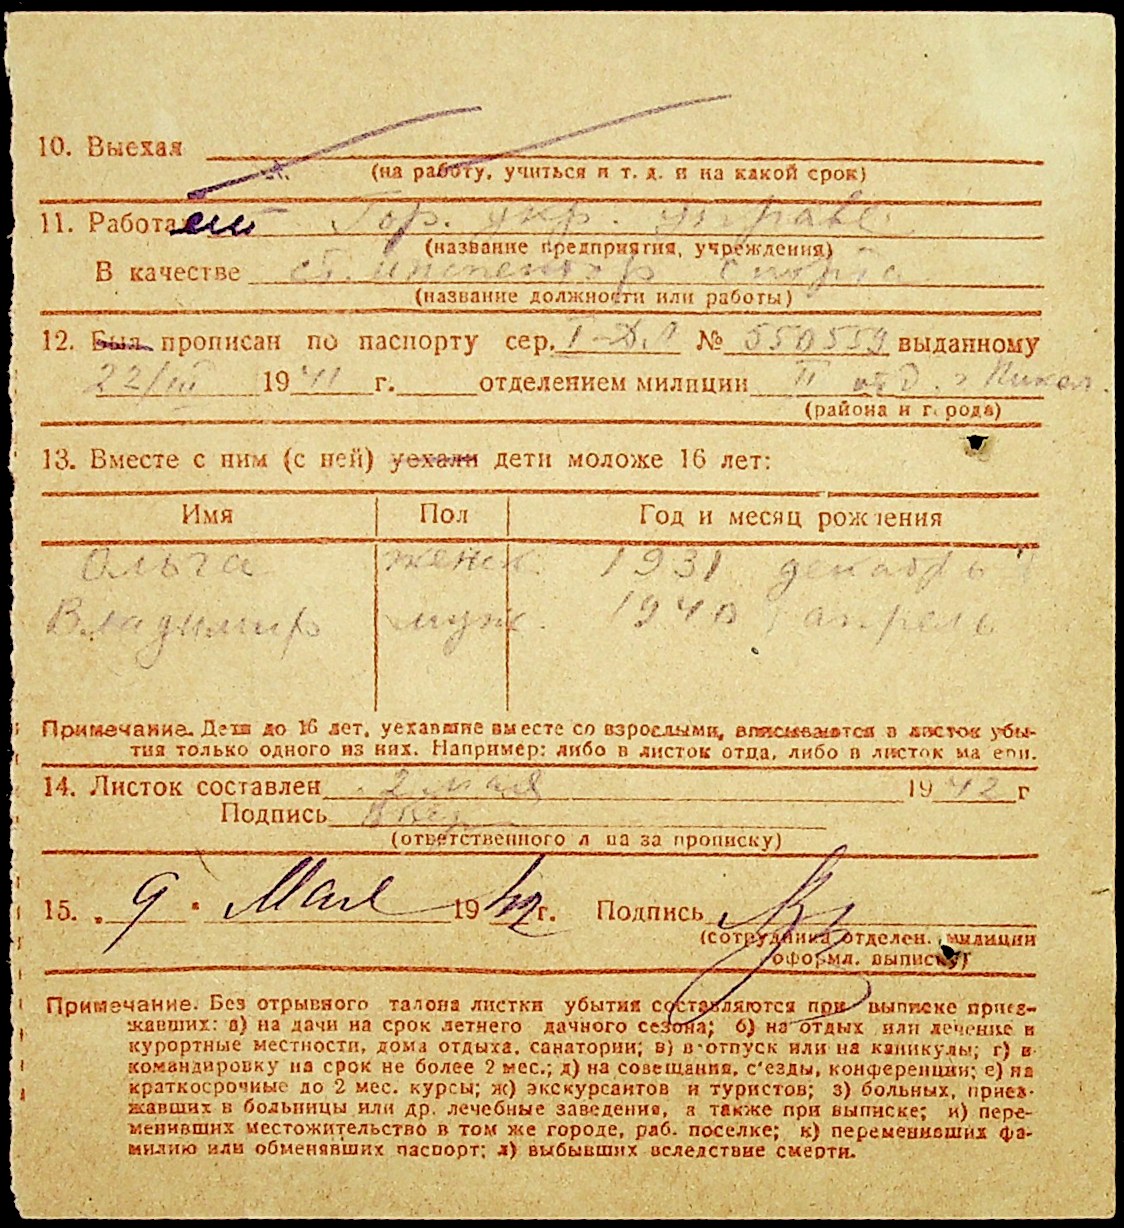 10. Выехал
(на работу, учиться и т. д. и на какой срок)
11. Работает Гор. укр. управе
(название предприятия, учреждения)
В качестве ст. инспектор спорта
(название должности или работы)
12. Был прописан по паспорту сер. I-Д.Л № 550559 выданному
22/III 1941 г. отделением милиции II отд. г Никол.
(района и города)
13. Вместе с ним (с ней) уехали дети моложе 16 лет:
Имя Пол Год и месяц рождения
Ольга женск. 1931 декабрь
Владимир муж. 1940 апрель
Примечание. Дети до 16 лет, уехавшие вместе со взрослыми, вписываются в листок убы-
тия только одного из них. Например: либо в листок отца, либо в листок матери.
14. Листок составлен 2 мая 1942 г
Подпись
(ответственного лица за прописку)
15. „9" Мая 1942 г. Подпись
(сотрудника отделен. милиции
оформл. выписку)
Примечание. Без отрывного талона листки убытия составляются при выписке приез-
жавших: а) на дачи на срок летнего дачного сезона; б) на отдых или лечение в
курортные местности, дома отдыха, санатории; в) в отпуск или на каникулы; г) в
командировку на срок не более 2 мес.; д) на совещания, с'езды, конференции; е) на
краткосрочные до 2 мес. курсы; ж) экскурсантов и туристов; з) больных, приез-
жавших в больницы или др. лечебные заведения, а также при выписке; и) пере-
менивших местожительство в том же городе, раб. поселке; к) переменивших фа-
милию или обменявших паспорт; л) выбывших вследствие смерти.